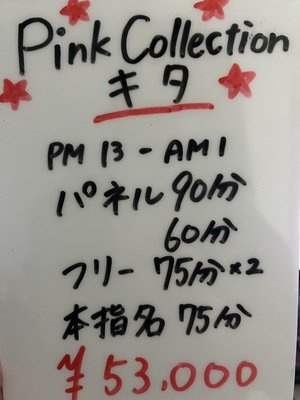 Pink Collection
キタ
PM 13 - AM 1
パネル 90分
60分
フリー 75分×2
本指名 75分
¥53.000